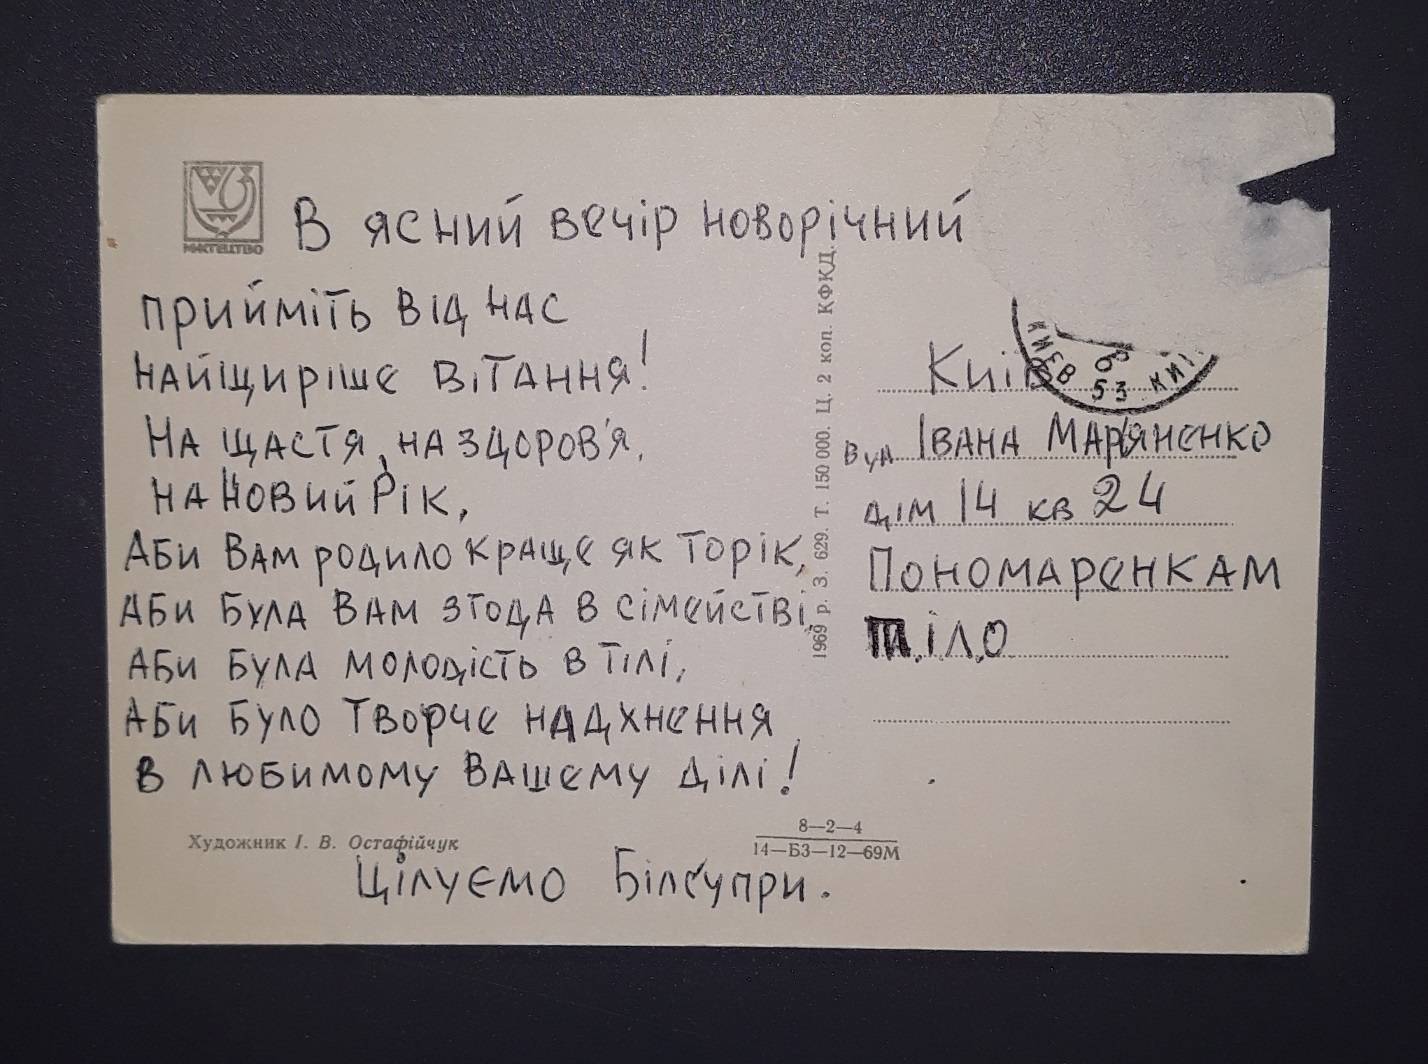 МИСТЕЦТВО
В ясний вечір новорічний
прийміть від нас
найщиріше вітання!
На щастя, на здоров'я,
на Новий Рік,
Аби Вам родило краще як торік,
Аби була Вам згода в сімействі,
Аби була молодість в тілі,
Аби було творче надхнення
в любимому Вашему ділі!
Художник І. В. Остафійчук
8—2—4
14—БЗ—12—69М
Цілуємо
1969 р. З. 629. Т. 150 000. Ц. 2 коп. КФКД.
КИЕВ 53
Київ
вул Івана Мар'яненко
дім 14 кв 24
Пономаренкам